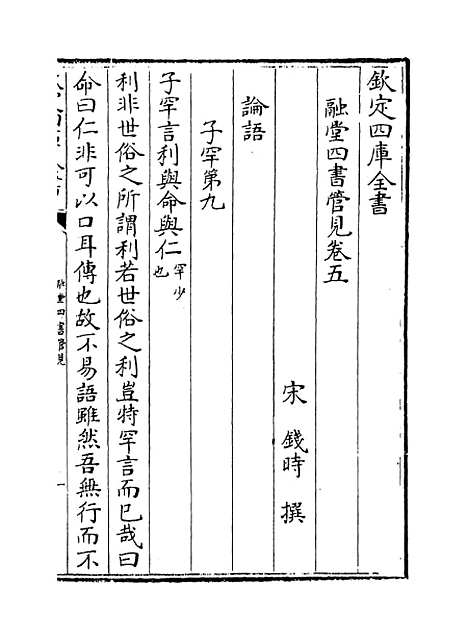 欽定四庫全書
融堂四書管見卷五
宋 錢時 撰
論語
子罕第九
子罕言利與命與仁罕少也
利非世俗之所謂利若世俗之利豈特罕言而已哉曰
命曰仁非可以口耳傳也故不易語雖然吾無行而不
融堂四書管見
一